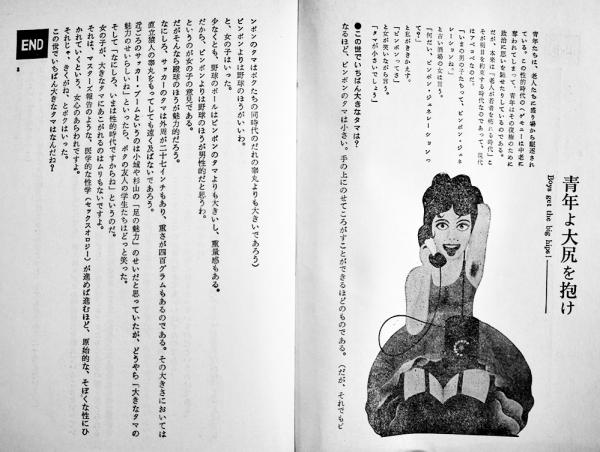 青年よ大尻を抱け
Boys get the big hips!
青年たちは、老人たちに盛り場から駆逐され
ている。この性的時代のヘゲモニーは中老に
奪われてしまって、青年はその復権のために
政治に思いを馳せたりしているのである。
だが、本来は「老人が若者を怖れる時代」と
そが明日を約束する時代なのであって、現代
はアベコベなのだ。
「いまの男の子たちって、ピンポン・ジェネ
レーションね」
と古い酒場の女は言う。
「何だい、ピンポン・ジェネレーションっ
て?」
とボクがききかえす。
「ピンポンってさ」
と女が笑いながら言う。
「タマが小さいでしょう」
●この世でいちばん大きなタマは?
なるほど、ピンポンのタマは小さい。手の上にのせてころがすことができるほどのものである。(だが、それでもピ
ンポンのタマはボクたちの同時代のだれの睾丸よりも大きいであろう)
ピンポンよりは野球のほうがいいわ。
と、女の子はいった。
少なくとも、野球のボールはピンポンのタマよりも大きいし、重量感もある。
だから、ピンポンよりは野球のほうが男性的だと思うわ。
というのが女の子の意見である。
だがそんなら蹴球のほうが魅力的だろう。
なにしろ、サッカーのタマは外周が二十七インチもあり、重さが四百グラムもあるのである。その大きさにおいては
直立猿人の睾丸をもってしても遠く及ばないであろう。
近ごろのサッカー・ブームというのは小城や杉山の「足の魅力」のせいだと思っていたが、どうやら「大きなタマの
魅力のせいらしいね」といったら、ボクの友人の学生たちはどっと笑った。
そして「なにしろ、いまは性的時代ですからね」というのだ。
女の子が、大きなタマにあこがれるのはムリもないですよ。
それは、マスターズ報告のような、医学的な性学(セックスオロジー)が進めば進むほど、原始的な、そぼくな性にひ
かれていくという、女心のあらわれですよ。
それじゃ、きくがね、とボクはいった。
この世でいちばん大きなタマはなんだね?
END